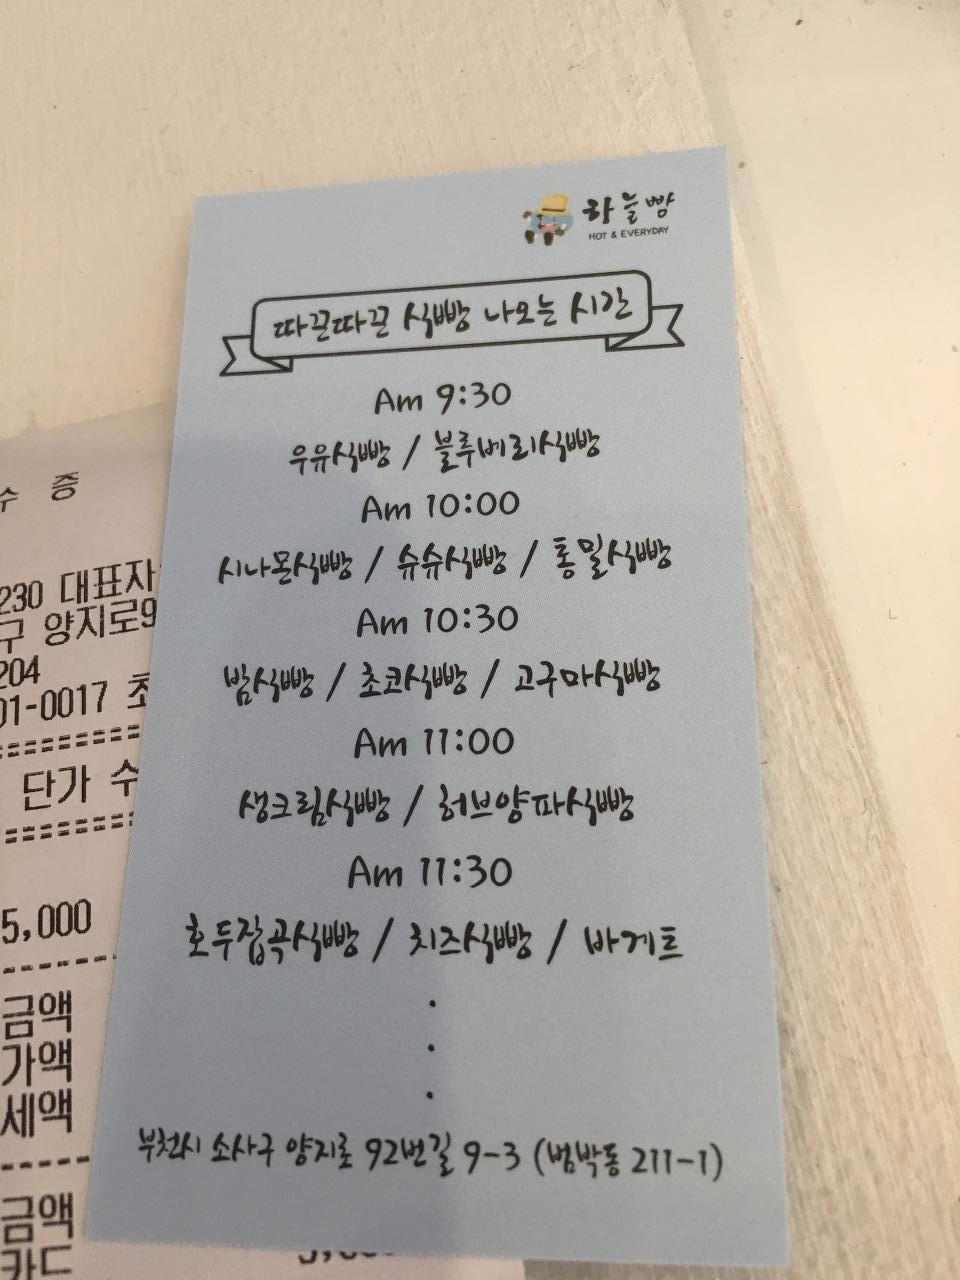 하늘빵
HOT & EVERYDAY
따끈따끈 식빵 나오는 시간
Am 9:30
우유식빵 / 블루베리식빵
Am 10:00
시나몬식빵 / 슈슈식빵 / 통밀식빵
Am 10:30
밤식빵 / 초코식빵 / 고구마식빵
Am 11:00
생크림식빵 / 허브양파식빵
Am 11:30
호두잡곡식빵 / 치즈식빵 / 바게트
부천시 소사구 양지로 92번길 9-3 (범박동 211-1)
수 증
230 대표자
구 양지로9
204
01-0017
단가 수
5,000
금액
가액
세액
금액
카드